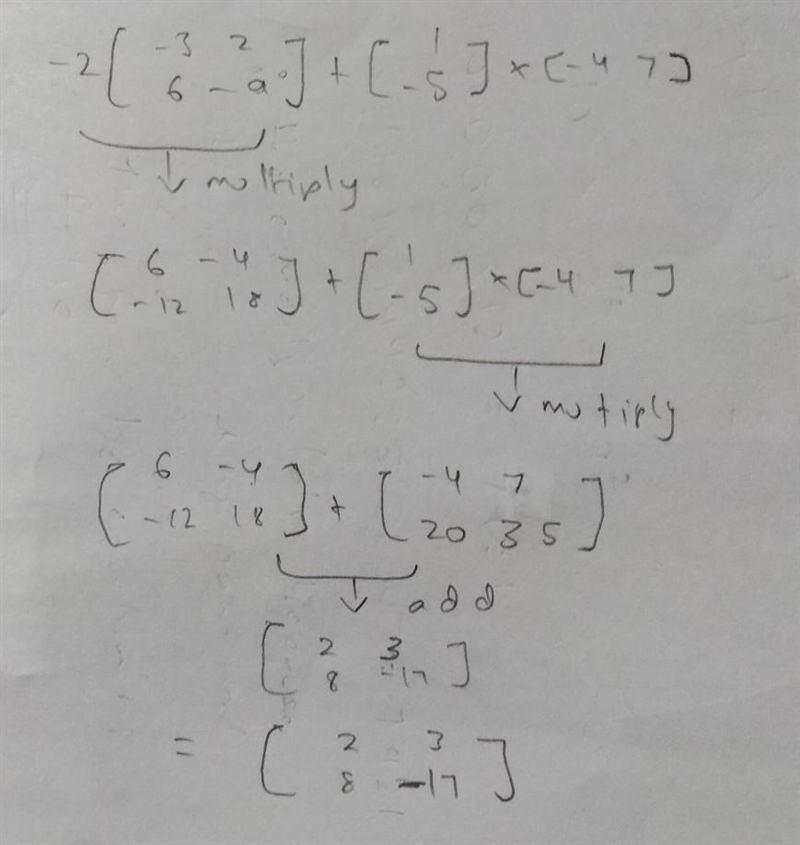 -2[-3 2
6 -9] + [1
-5] × [-4 7]
↓ multiply
[6 -4
-12 18] + [1
-5] × [-4 7]
↓ mutiply
[6 -4
-12 18] + [-4 7
20 35]
↓ add
[2 3
8 -17]
= [2 3
8 -17]